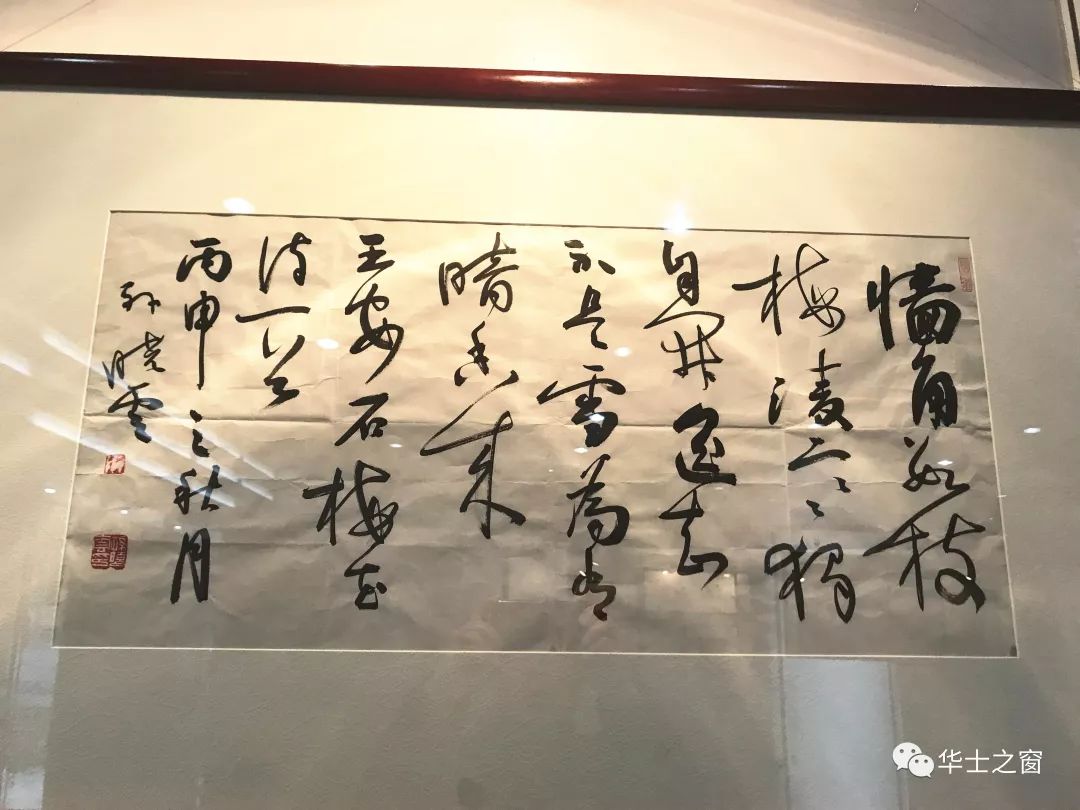 墙角数枝
梅凌寒独
自开遥知
不是雪為有
暗香来
王安石梅花
诗一首
丙申之秋月
孙晓云
华士之窗